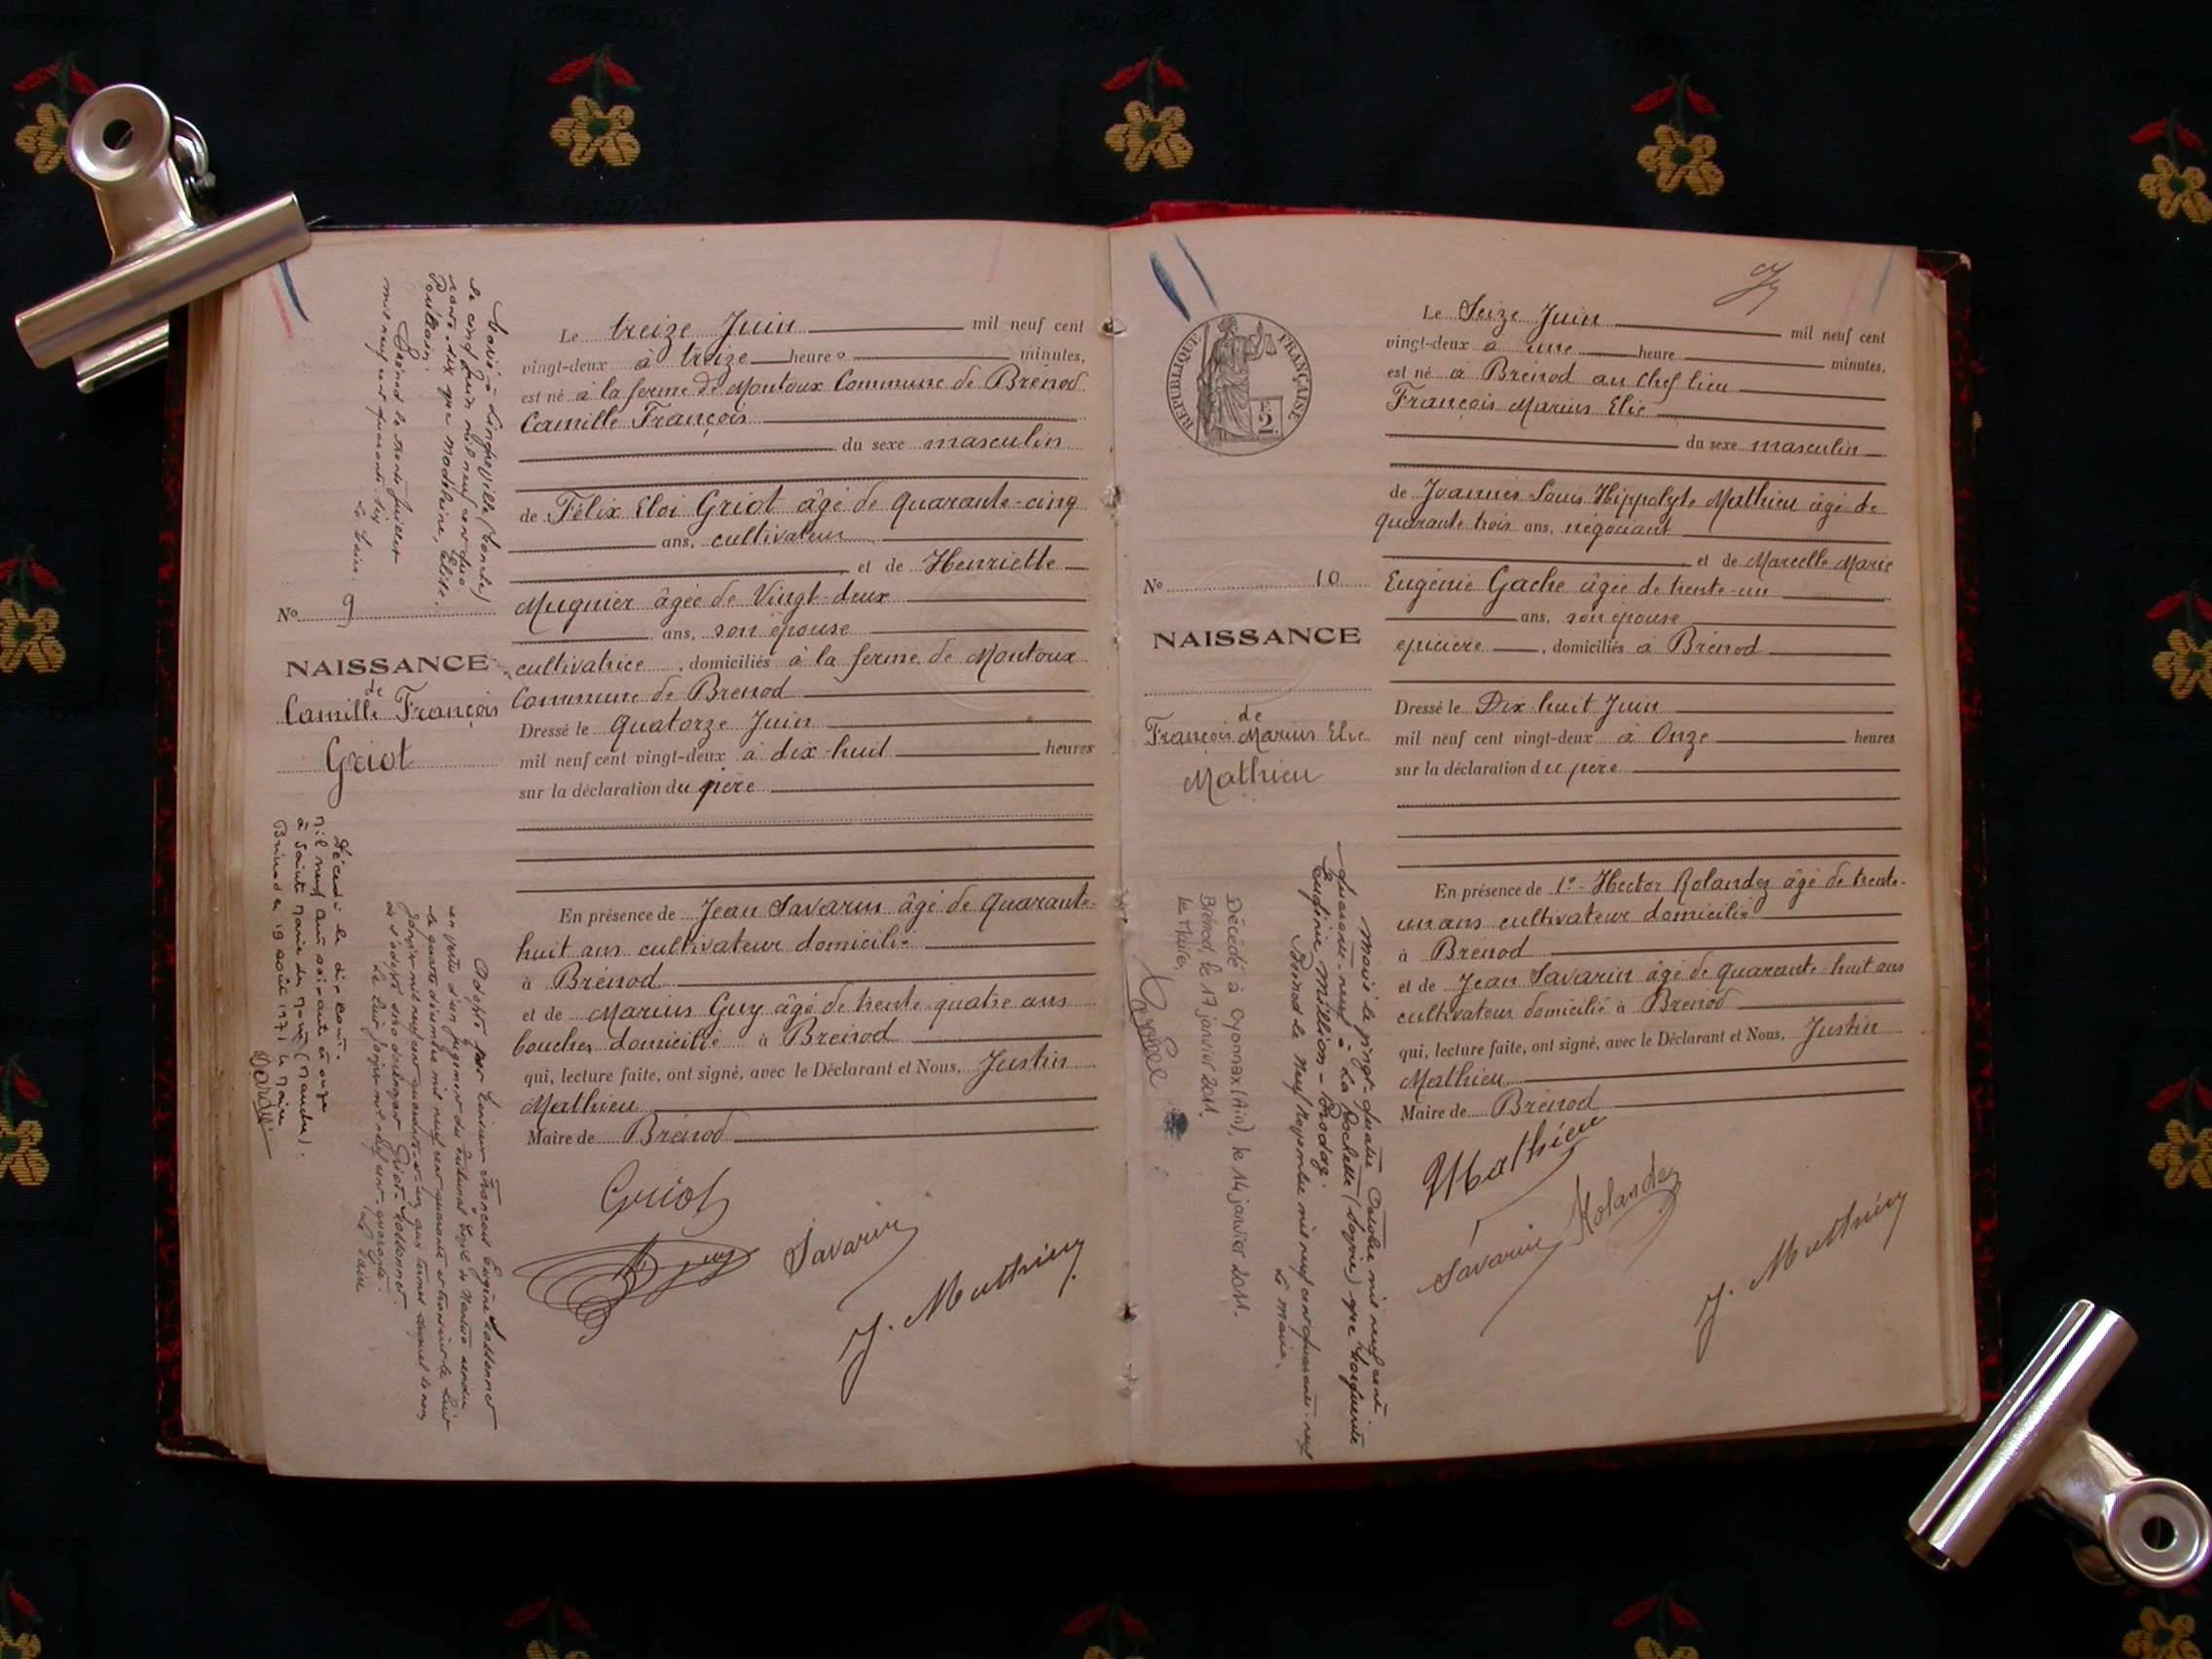 Le treize Juin mil neuf cent
vingt-deux à treize heures minutes,
est né à la ferme de Montoux Commune de Brénod
Camille François
du sexe masculin
de Félix Eloi Griot âgé de quarante-cinq
ans, cultivateur
et de Henriette
Mugnier âgée de Vingt-deux
ans, son épouse
cultivatrice, domiciliés à la ferme de Montoux
Commune de Brénod
Dressé le quatorze Juin
mil neuf cent vingt-deux à dix-huit heures
sur la déclaration du père
En présence de Jean Savarin âgé de quarante-
huit ans cultivateur domicilié
à Brénod
et de Marius Guy âgé de trente quatre ans
boucher domicilié à Brénod
qui, lecture faite, ont signé, avec le Déclarant et Nous, Justin
Mathieu
Maire de Brénod
Griot
Savarin
J. Mathieu
No 9
NAISSANCE
de
Camille François
Griot
le cinq Juin mil neuf cent qua
Brénod le trente juillet
mil neuf cent quarante six
Le Maire.
Décédé le dix août
mil neuf cent soixante et onze
à Sainte Marie du Mont (Manche).
Brénod le 19 août 1971 le Maire
Adopté par François Eugène
en vertu d'un jugement du Tribunal Civil de Nantua rendu
le quatre décembre mil neuf cent quarante et transcrit le huit
janvier mil neuf cent quarante-un, aux termes duquel le nom
Le Maire
RÉPUBLIQUE FRANÇAISE
2
No 10
NAISSANCE
de
François Marius Elie
Mathieu
Le Seize Juin mil neuf cent
vingt-deux à une heure minutes,
est né à Brénod au chef lieu
François Marius Elie
du sexe masculin
de Joannès Louis Hippolyte Mathieu âgé de
quarante trois ans, négociant
et de Marcelle Marie
Eugénie Gache âgée de trente-un
ans, son épouse
épicière, domiciliés à Brénod
Dressé le Dix huit Juin
mil neuf cent vingt-deux à Onze heures
sur la déclaration du père
En présence de 1º- Hector Rolandez âgé de trente-
un ans cultivateur domicilié
à Brénod
et de Jean Savarin âgé de quarante-huit ans
cultivateur domicilié à Brénod
qui, lecture faite, ont signé, avec le Déclarant et Nous, Justin
Mathieu
Maire de Brénod
Mathieu
Savarin Rolandez
J. Mathieu
Marié le vingt-quatre Octobre mil neuf cent
quarante-neuf à La Rochette (Savoie) avec Marguerite
Eugénie Million-Brodaz
Brénod le neuf Novembre mil neuf cent quarante-neuf
Le maire.
Décédé à Oyonnax (Ain), le 14 janvier 2011.
Brénod, le 17 janvier 2011.
Le Maire,